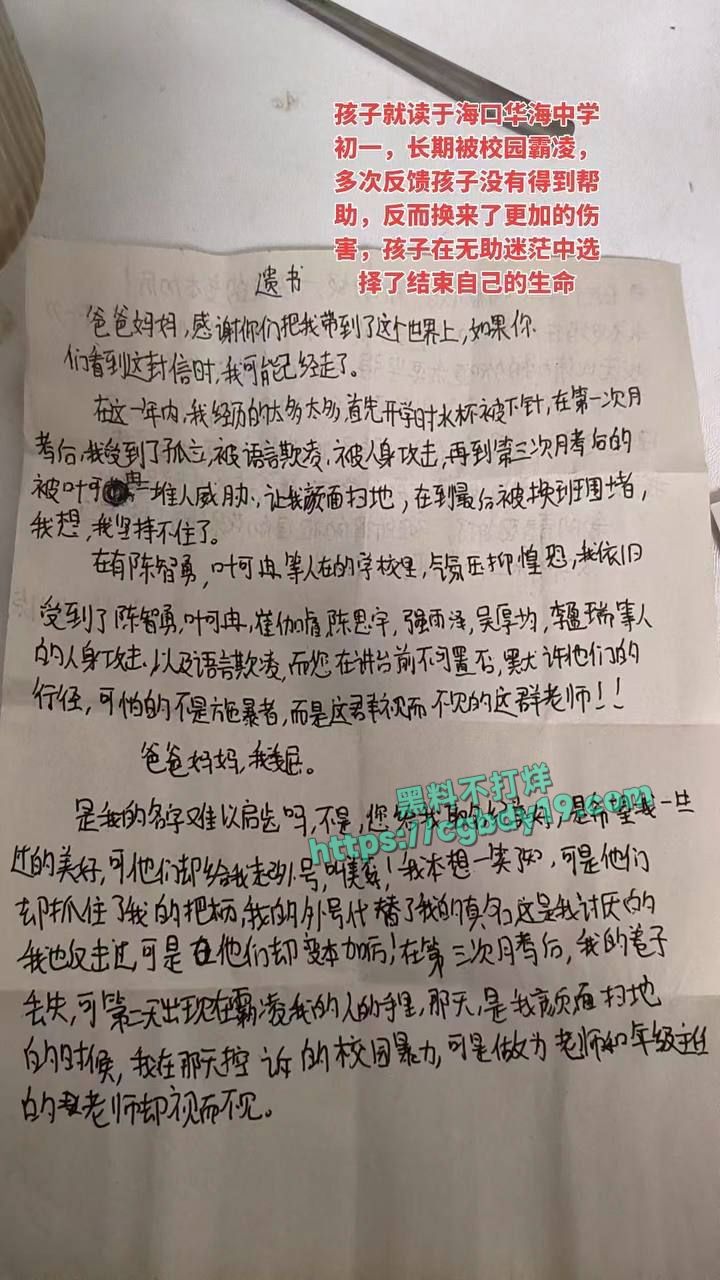 孩子就读于海口华海中学
初一，长期被校园霸凌，
多次反馈孩子没有得到帮
助，反而换来了更加的伤
害，孩子在无助迷茫中选
择了结束自己的生命
遗书
爸爸妈妈，感谢你们把我带到了这个世界上，如果你
们看到这封信时，我可能已经走了。
在这一年内，我经历的太多太多，首先开学时水杯被下针，在第一次月
考后，我受到了孤立，被语言欺凌，被人身攻击，再到第三次月考后的
被叶可冉一堆人威胁，让我颜面扫地，在到最后被换班围堵，
我想，我坚持不住了。
在有陈智勇，叶可冉等人在的学校里，气氛压抑惶恐，我依旧
受到了陈智勇，叶可冉，崔伽，陈思宇，强雨泽，吴厚均，瑞等人
的人身攻击以及语言欺凌，而您在讲台前不可置否，默许他们的
行径，可怕的不是施暴者，而是这群视而不见的这群老师！！
爸爸妈妈，我委屈。
是我的名字难以启齿吗，不是，您给我取的名真好，是希望我一生
过的美好，可他们却给我起外号，叫！我本想一笑，可是他们
却抓住了我的把柄，我的外号代替了我的真名，这是我讨厌的
我也反击过，可是在他们却变本加厉！在第三次月考后，我的卷子
丢失，可第二天出现在霸凌我的人的手里，那天，是我颜面扫地
的时候，我在那天控诉的校园暴力，可是做为老师和年级主任
的老师却视而不见。
黑料不打烊
https://cgbdy19.com